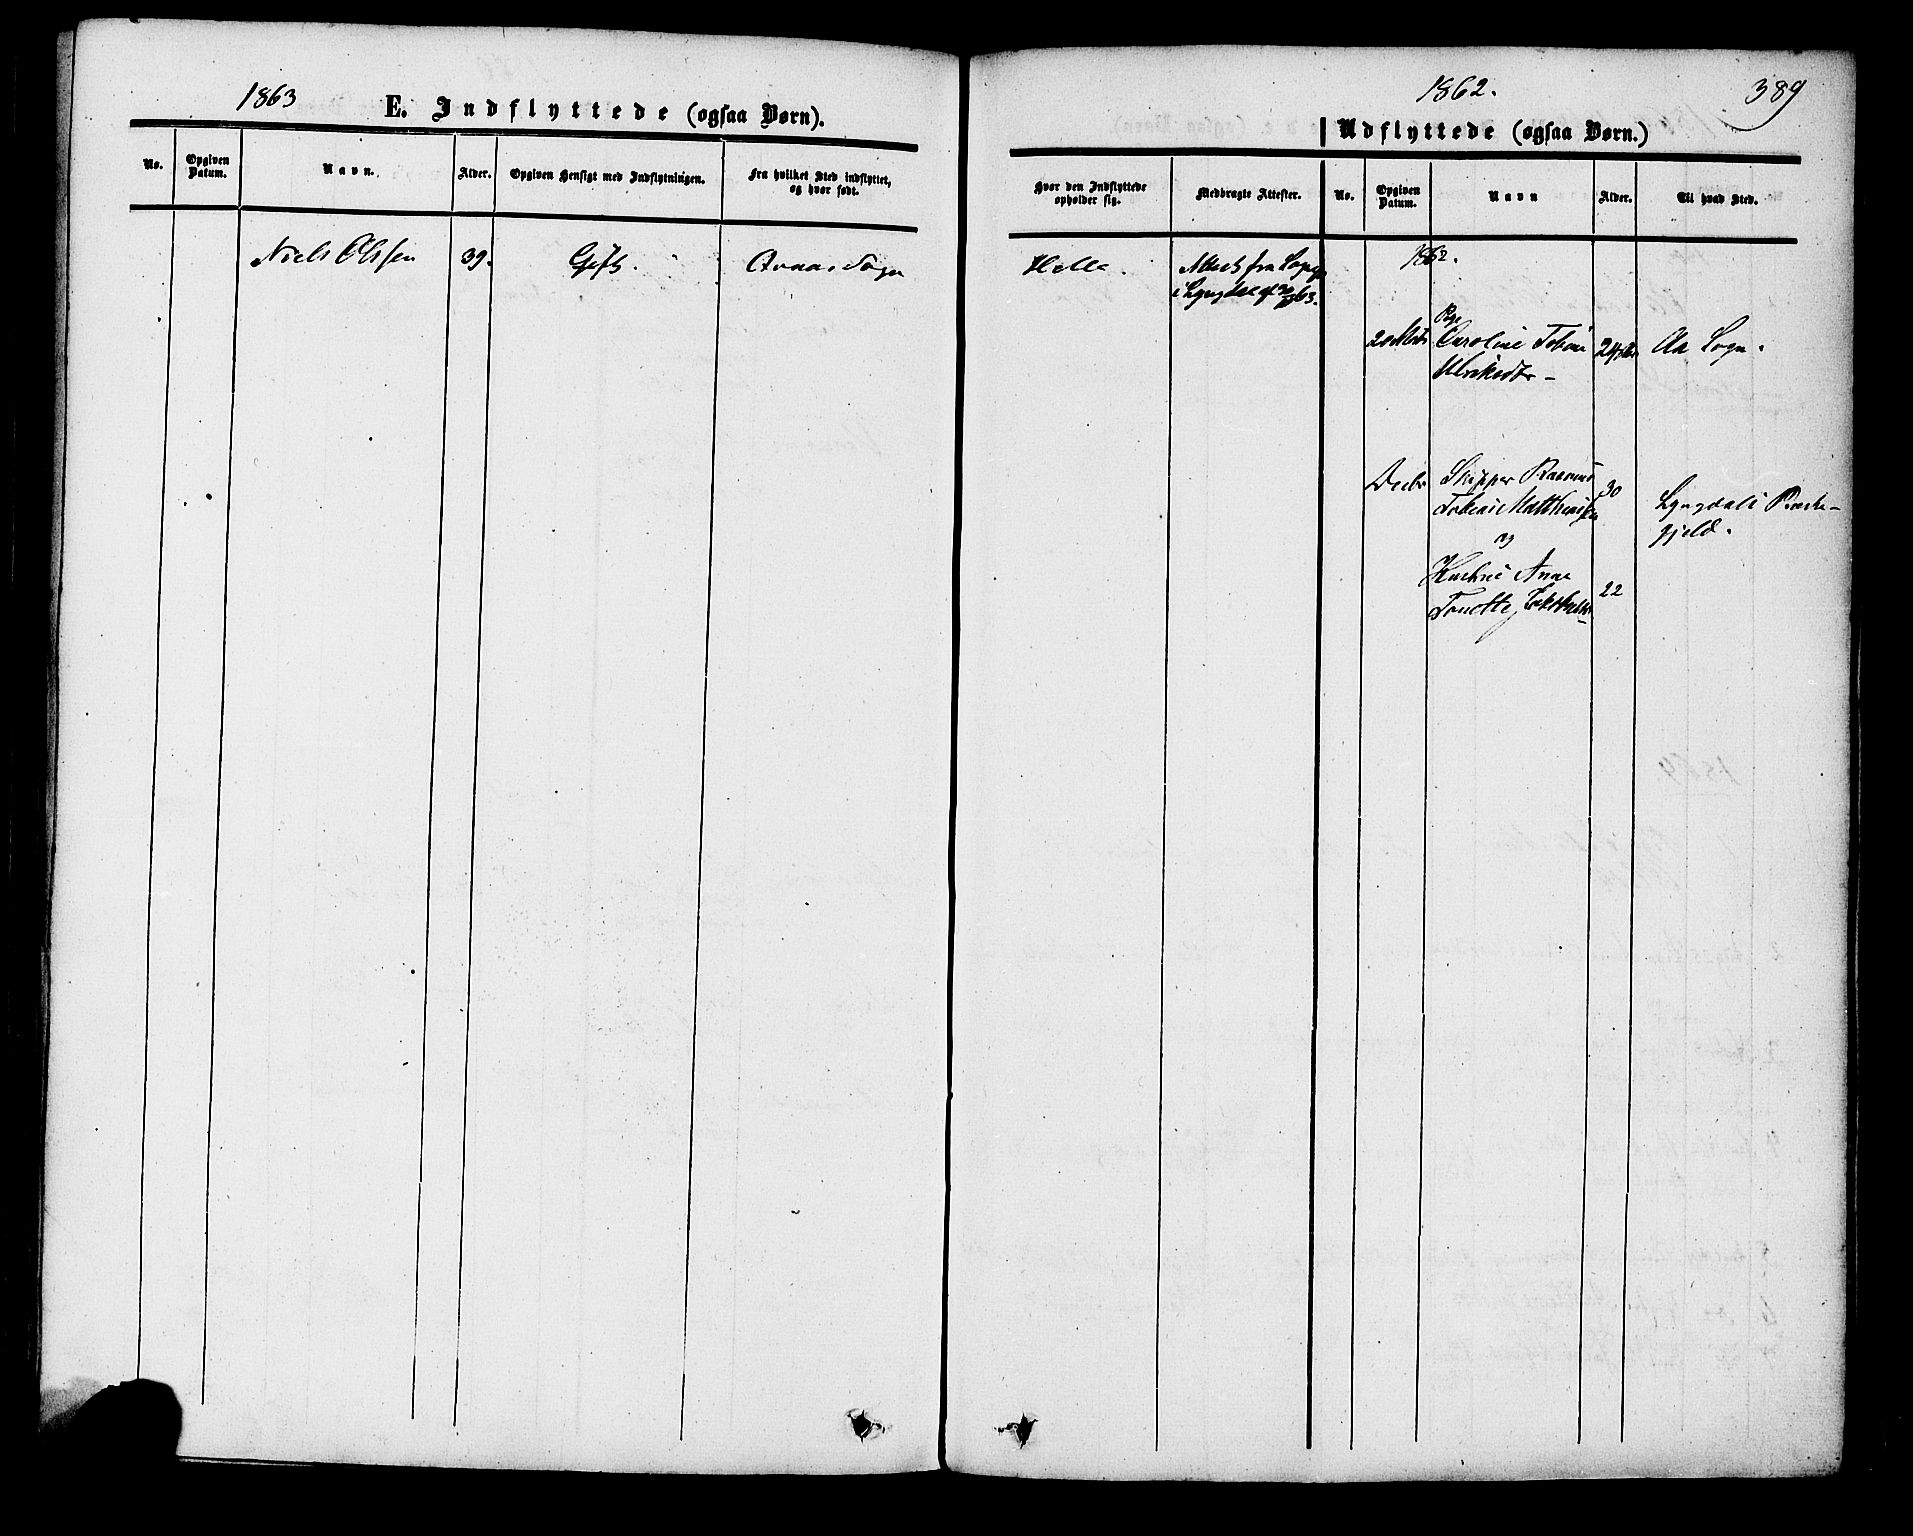 1863
E. Indflyttede (ogsaa Børn).
No.
Opgiven Datum.
Navn.
Alder.
Opgiven Hensigt med Indflytningen.
Fra hvilket Sted indflyttet, og hvor født.
Niels Olsen
39.
Gift.
Sogn
1862.
389
Udflyttede (ogsaa Børn.)
Hvor den Indflyttede opholder sig.
Medbragte Attester.
No.
Opgiven Datum.
Navn
Alder.
Til hvad Sted.
Helle.
Attest fra
i Lyngdal
63.
1862.
Pige
Caroline Tobine
Aa Sogn.
Decbr
Skipper Rasmus
Tobias Matthias
30
Lyngdals Præste-
gjeld.
og
Hustrue Anne
Tonette
22